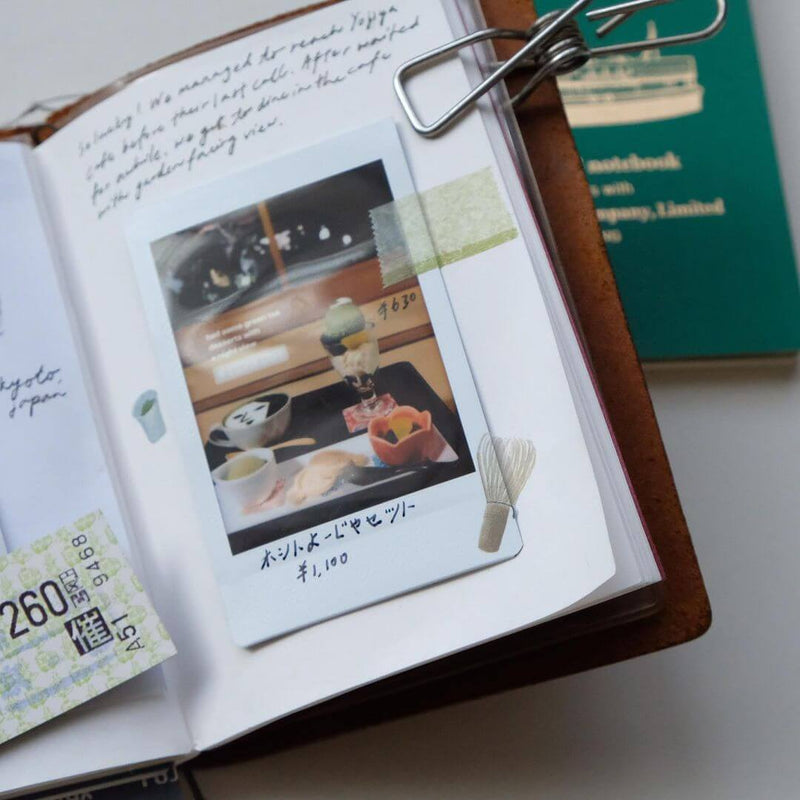 So lucky! We managed to reach Yojiya
cafe before their last call. After waited
for awhile, we got to dine in the cafe
with garden facing view.
¥630
desserts with
ホットよーじやセット
¥1,100
kyoto,
Japan
260
催
9468
A51
notebook
with
ompany, Limited